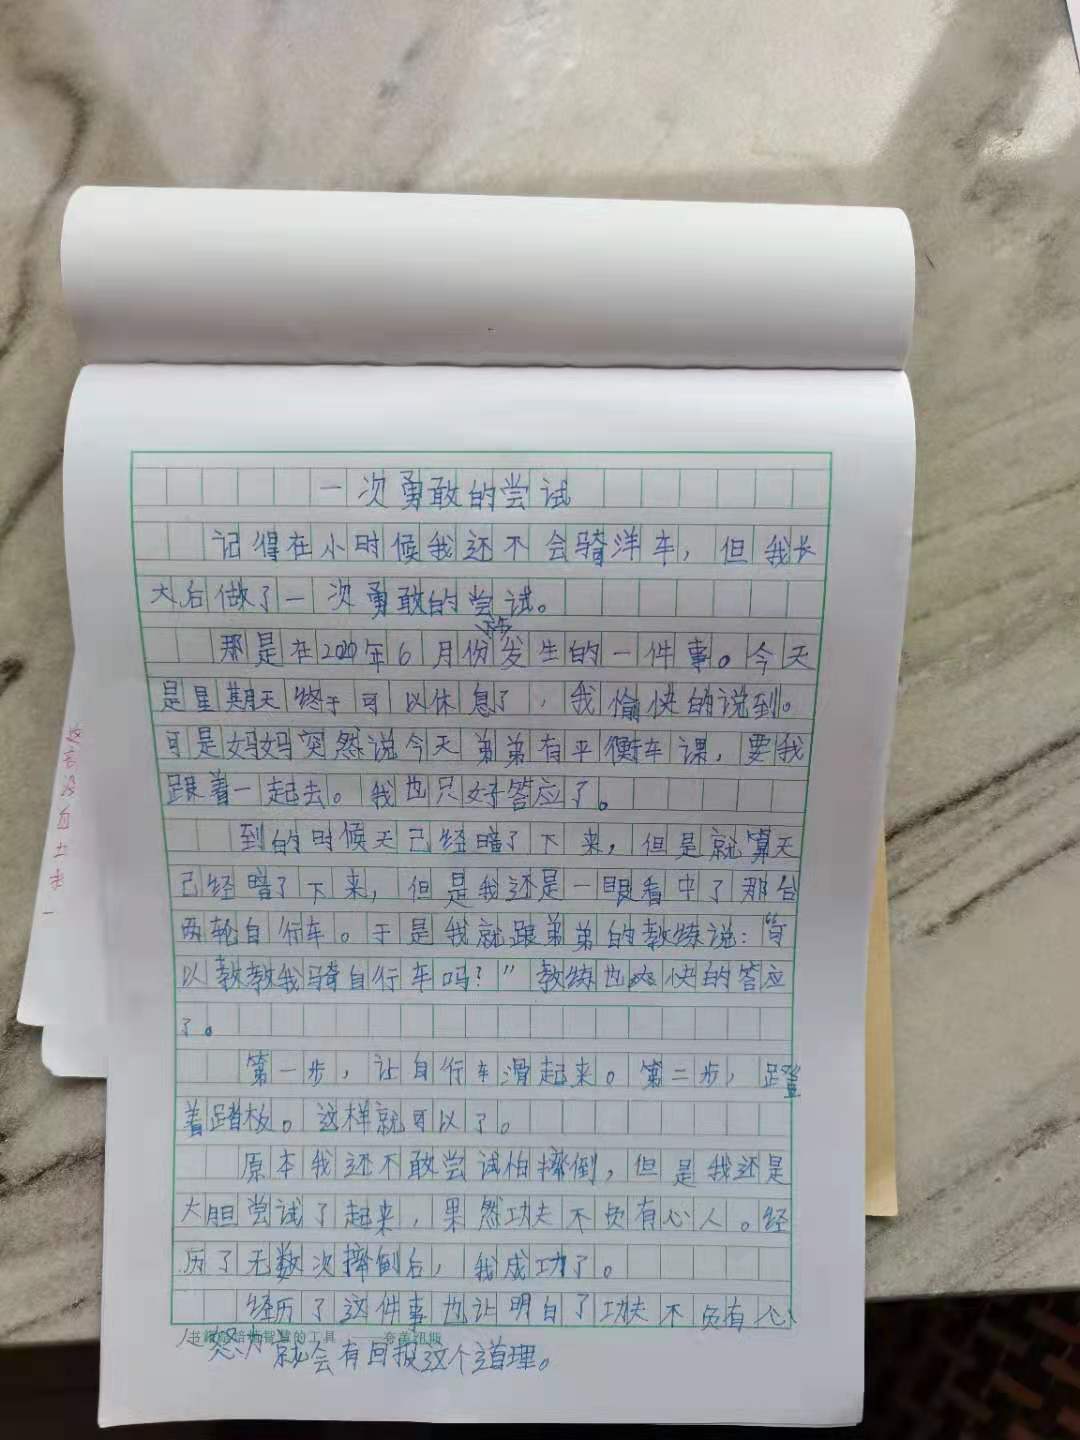 一次勇敢的尝试
记得在小时候我还不会骑洋车，但我长
大后做了一次勇敢的尝试。
那是在2020年6月份发生的一件事。今天
是星期天终于可以休息了，我愉快的说到。
可是妈妈突然说今天弟弟有平衡车课，要我
跟着一起去。我也只好答应了。
到的时候天已经暗了下来，但是就算天
已经暗了下来，但是我还是一眼看中了那台
两轮自行车。于是我就跟弟弟的教练说：“可
以教教我骑自行车吗？”教练也爽快的答应
了。
第一步，让自行车滑起来。第二步，蹬
着踏板。这样就可以了。
原本我还不敢尝试怕摔倒，但是我还是
大胆尝试了起来，果然功夫不负有心人。经
历了无数次摔倒后，我成功了。
经历了这件事也让明白了功夫不负有心
人 努力就会有回报这个道理。